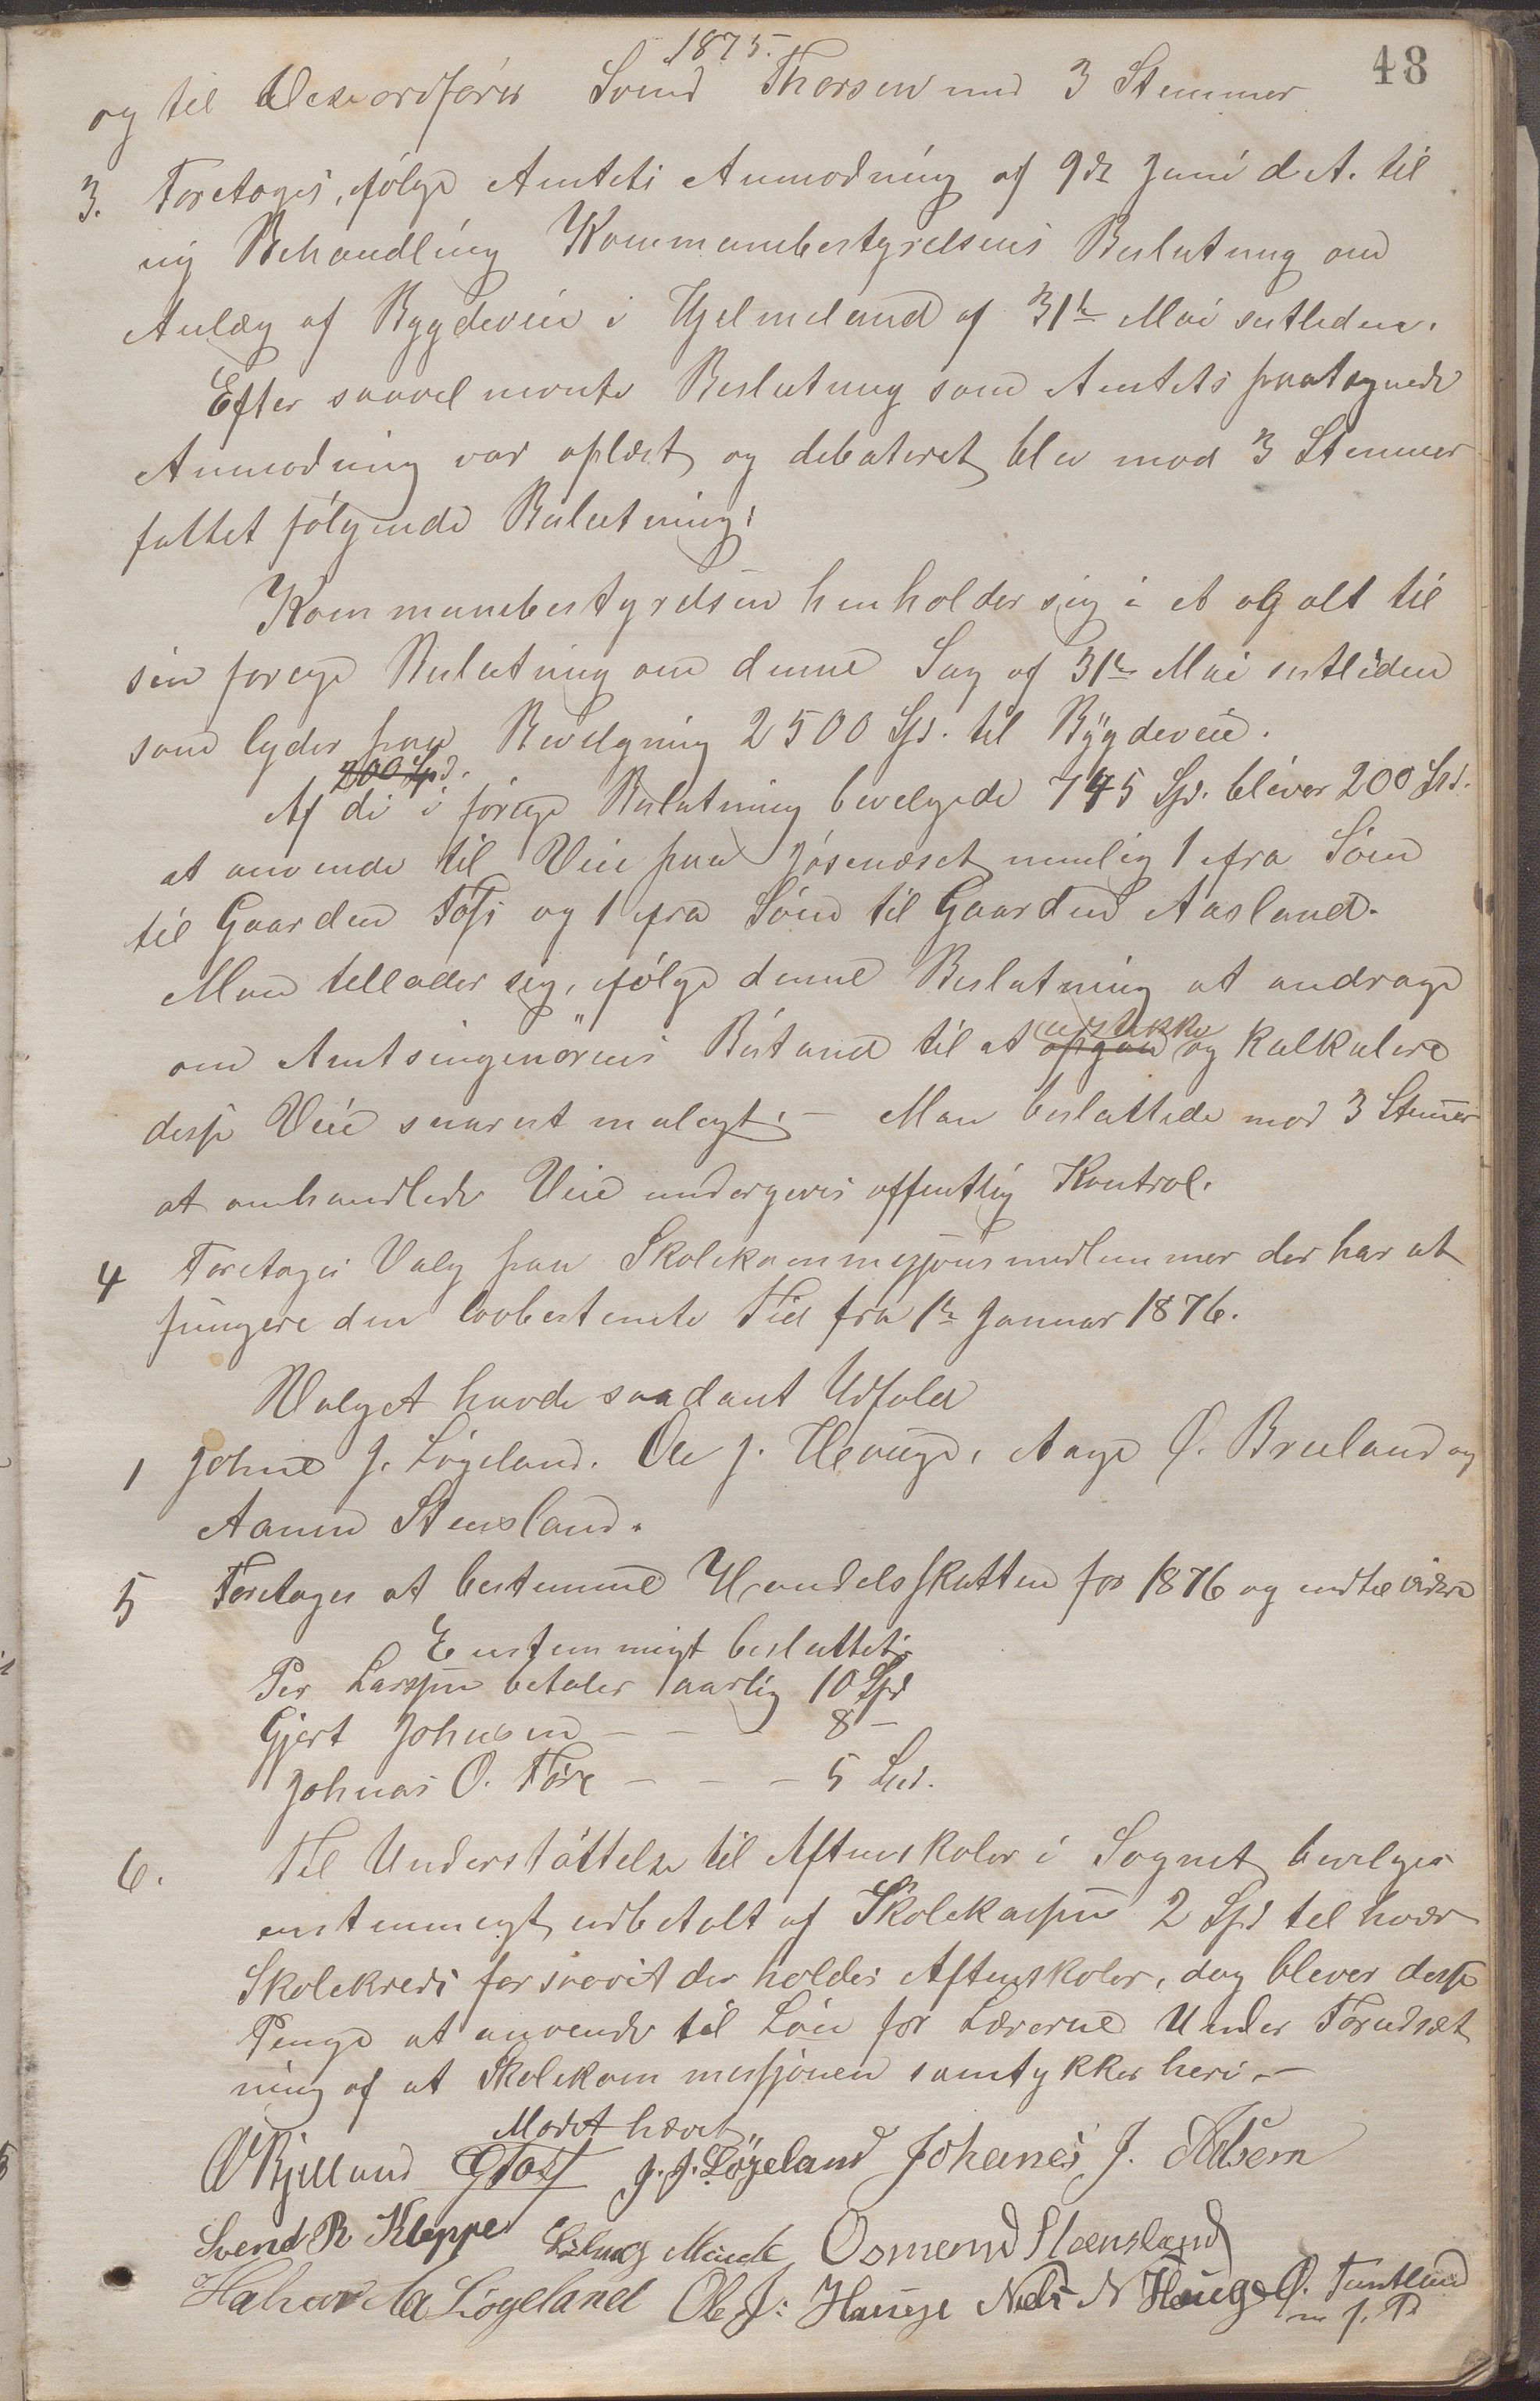 1875.
48
og til Viseordfører Svend Thorsen med 3 Stemmer
3. Foretoges, ifølge Amtets Anmodning af 9de Juni d. A. til
ny Behandling Kommunebestyrelsens Beslutning om
Anlæg af Bygdeveie i Hjelmeland af 31te Mai sidstleden.
Efter saavel nevnte Beslutning som Amtets paategnede
Anmodning var oplæst og debateret blev mod 3 Stemmer
fattet følgende Beslutning:
Kommunebestyrelsen henholder sig i et og alt til
sin forrige Beslutning om denne Sag af 31te Mai sistleden
som lyder paa Bevilgning 2500 Spd. til Bygdeveie.
200 Spd.
Af de i forrige Beslutning bevilgede 745 Spd. bliver 200 Spd.
at anvende til Veie paa Jøsenæset nemlig 1 fra Søen
til Gaarden Tøfs og 1 fra Søen til Gaarden Aasland.
Man tillader sig, ifølge denne Beslutning at andrage
om Amtsingeniørens Bistand til at opgaa udstikke og kalkulere
disse Veie snarest muligt. – Man besluttede mod 3 Stemmer
at omhandlede Veie undergives offentlig Kontrol.
4 Foretages Valg paa Skolekommissjonsmedlemmer der har at
fungere den lovbestemte Tid fra 1te Januar 1876.
Valget havde saadant Udfald
1 Johne J. Løgeland. Ole J. Hauge, Aage Ø. Breiland og
Aamund Steensland.
5 Foretages at bestemme Handelsskatten for 1876 og indtil videre
Enstemmigt besluttet:
Per Larssen betaler aarlig 10 Spd
Gjert Johnsen – – – 8 –
Johnas O. Føre – – – 5 Spd.
6. Til Understøttelse til Aftenskoler i Sognet bevilges
enstemmigt udbetalt af Skolekassen 2 Spd til hver
Skolekreds forsaavit der holdes Aftenskoler, dog bliver disse
Penge at anvende til Løn for Lærerne Under Forudsæt
ning af at Skolekommissjonen samtykker heri. –
Mødet hævet
O Kjelland G Tøsf J. J. Løgeland Johanes J. Aalsem
Svend R Kleppe Helmeland
Halvor Aa Løgeland Osmend Steensland
Ole J. Hauge Nels N Hauge Ø. Tuntland
m f. P